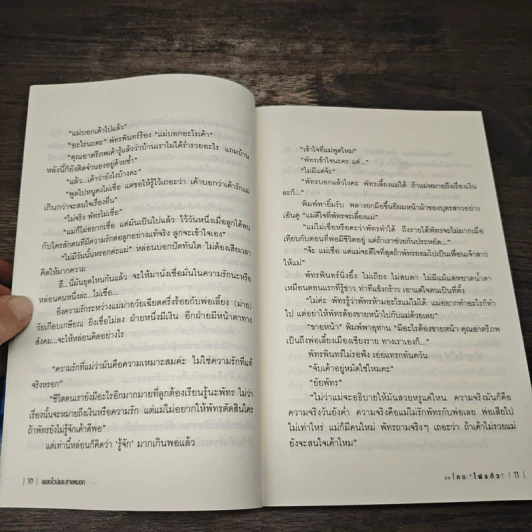 "แม่บอกเค้าไปแล้ว"
"อะไรนะคะ" พัทธพินทร์ร้อง "แม่บอกอะไรเค้า"
"คุณอาตรีภพเค้ารู้แล้วว่าบ้านเราไม่ได้ร่ำรวยอะไร แถมบ้าน
หลังนี้ก็ยังติดจำนองอยู่ด้วยซ้ำ"
"แล้ว...เค้าว่ายังไงบ้างคะ"
"พูดไปหนูคงไม่เชื่อ แต่ขอให้รู้ไว้เถอะว่า เค้าบอกว่าเค้ารักแม่
เกินกว่าจะสนใจเรื่องอื่น"
"ไม่จริง พัทธไม่เชื่อ"
"แม่ก็ไม่อยากเชื่อ แต่มันเป็นไปแล้ว ไว้วันหนึ่งเมื่อลูกได้พบ
กับใครสักคนที่มีความรักต่อลูกอย่างแท้จริง ลูกจะเข้าใจเอง"
"ไม่มีวันนั้นหรอกค่ะแม่" หล่อนบอกปัดทันใด ไม่ต้องเสียเวลา
คิดให้มากความ
ฮึ...นี่มันยุคไหนกันแล้ว จะให้มานั่งเชื่อมั่นในความรักน่ะหรือ
หล่อนคนหนึ่งล่ะ...ไม่เชื่อ...
ยิ่งความรักระหว่างแม่ม่ายวัยเฉียดครึ่งร้อยกับพ่อเลี้ยง (ม่าย)
วัยเกือบเกษียณ ยิ่งเชื่อไม่ลง ฝ่ายหนึ่งมีเงิน อีกฝ่ายมีหน้าตาทาง
สังคม...จะให้หล่อนคิดอย่างไร
"ความรักที่แม่ว่ามันคือความเหมาะสมค่ะ ไม่ใช่ความรักที่แท้
จริงหรอก"
"ชีวิตคนเรายังมีอะไรอีกมากมายที่ลูกต้องเรียนรู้นะพัทธ ไม่ว่า
เรื่องนั้นจะหมายถึงเงินหรือความรัก แต่แม่ไม่อยากให้พัทธตัดสินใคร
ถ้าพัทธยังไม่รู้จักเค้าดีพอ"
แต่เท่านี้หล่อนก็คิดว่า 'รู้จัก' มากเกินพอแล้ว
| 10 |
"เข้าใจที่แม่พูดไหม"
"พัทธเข้าใจนะคะ แต่..."
"ไม่มีแต่จ้ะ"
"พัทธบอกแล้วไงคะ พัทธเลี้ยงแม่ได้ ถ้าแม่หมายถึงเรื่องเงิน
ละก็..."
พิมพ์พายิ้มรับ พลางยกมือขึ้นยีผมหน้าม้าของบุตรสาวอย่าง
เอ็นดู "แม่ดีใจที่พัทธจะเลี้ยงแม่"
"แม่ไม่เชื่อหรือคะว่าพัทธทำได้ ถึงรายได้พัทธจะไม่มากเมื่อ
เทียบกับตอนที่พ่อมีชีวิตอยู่ แต่ถ้าเราช่วยกันประหยัด..."
"จ้ะ แม่เชื่อ แต่แม่จะดีใจที่สุดถ้าพัทธยอมไปเป็นเพื่อนเจ้าสาว
ให้แม่"
พัทธพินทร์นิ่งขึ้ง ไม่เถียง ไม่สบตา ไม่มีแม้แต่หยาดน้ำตา
เหมือนตอนแรกที่รู้ข่าว ท่าทีแข็งกร้าว เอาแต่ใจตนเป็นที่ตั้ง
"ไม่ค่ะ พัทธรู้ว่าพัทธห้ามอะไรแม่ไม่ได้ แม่อยากทำอะไรก็ทำ
ไป แต่อย่าให้พัทธต้องขายหน้าไปกับแม่ด้วยเลย"
"ขายหน้า" พิมพ์พาอุทาน "มีอะไรต้องขายหน้า คุณอาตรีภพ
เป็นถึงพ่อเลี้ยงเมืองเชียงราย ทางเราเองก็..."
พัทธพินทร์ไม่รอฟัง เอ่ยแทรกทันควัน
"จับเค้าอยู่หมัดใช่ไหมคะ"
"ยัยพัทธ"
"ไม่ว่าแม่จะอธิบายให้มันสวยหรูแค่ไหน ความจริงมันก็คือ
ความจริงวันยังค่ำ ความจริงคือแม่ไม่รักพัทธกับพ่อเลย พ่อเสียไป
ไม่เท่าไหร่ แม่ก็มีคนใหม่ พัทธถามจริงๆ เถอะว่า ถ้าเค้าไม่รวยแม่
ยังจะสนใจเค้าไหม"
โดย "ไผ่แก้ว" | 11 |